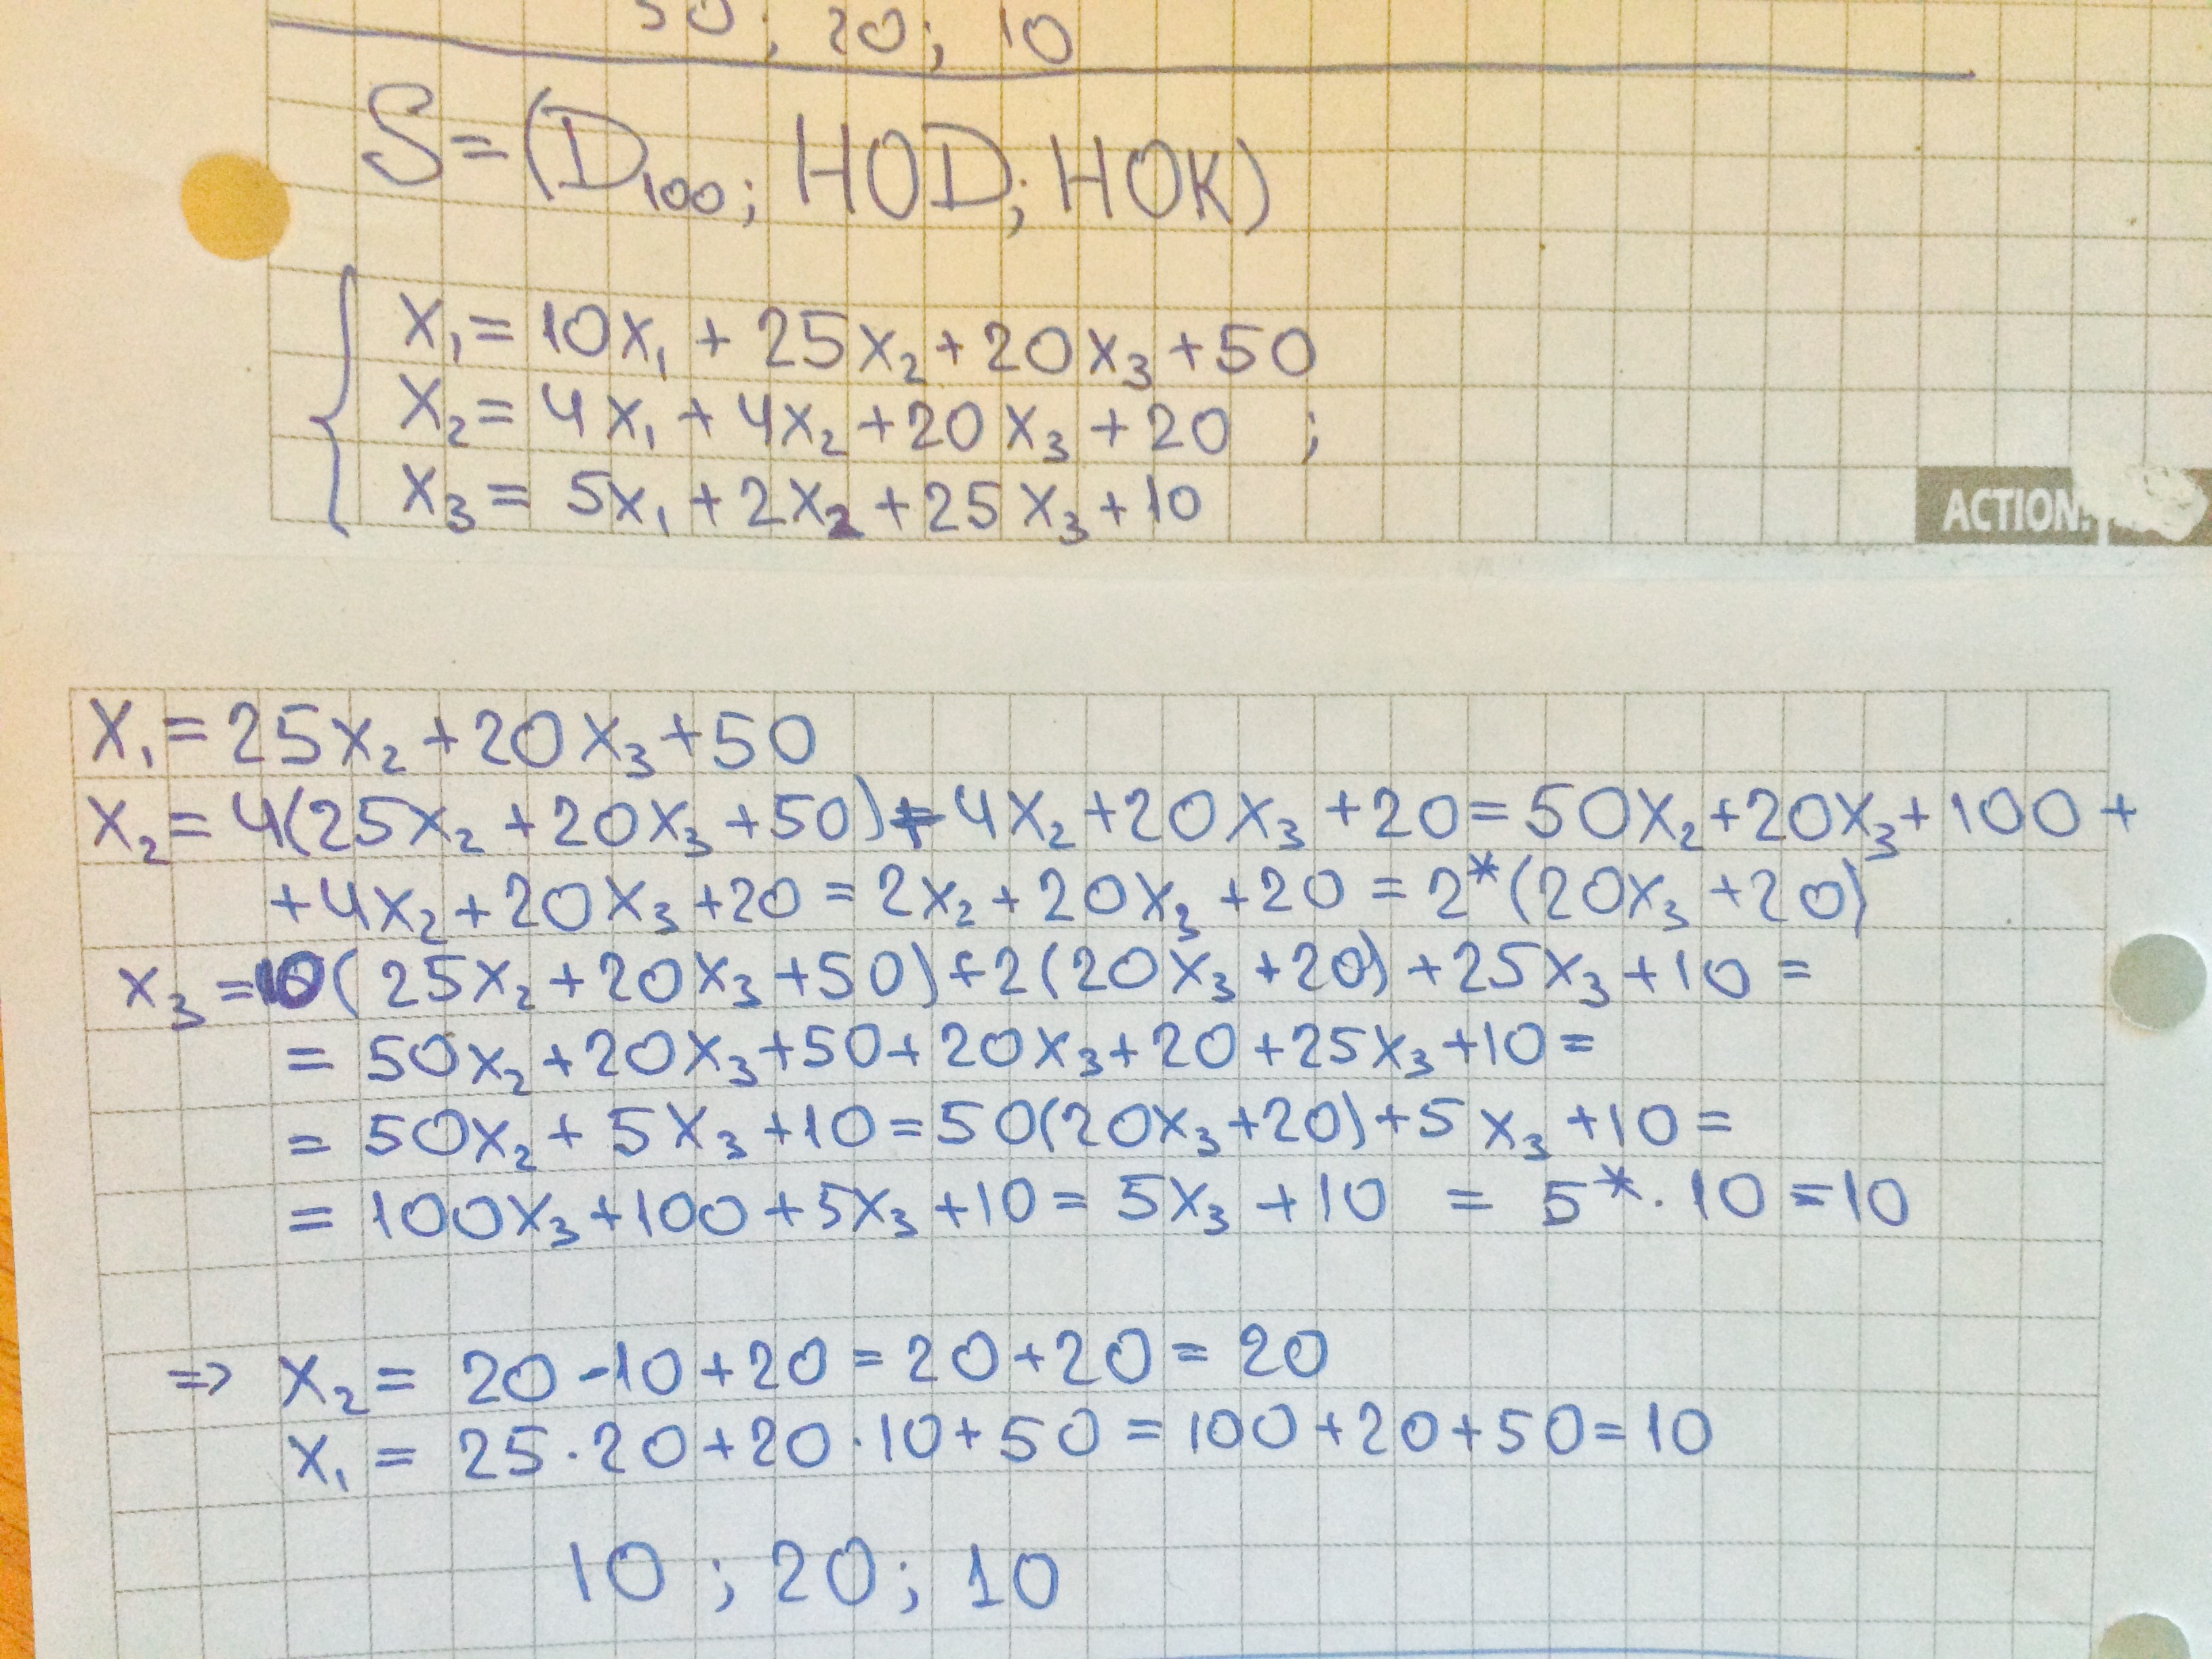 50; 20; 10
S=(D₁₀₀; HOD; HOK)
x₁= 10x₁ + 25x₂+20x₃+50
x₂= 4x₁ + 4x₂+20x₃+20 ;
x₃= 5x₁+2x₂+25x₃+10
ACTION!
x₁=25x₂+20x₃+50
x₂=4(25x₂+20x₃+50)+4x₂+20x₃+20=50x₂+20x₃+100+
+4x₂+20x₃+20=2x₂+20x₃+20=2*(20x₃+20)
x₃=10(25x₂+20x₃+50)+2(20x₃+20)+25x₃+10=
=50x₂+20x₃+50+20x₃+20+25x₃+10=
=50x₂+5x₃+10=50(20x₃+20)+5x₃+10=
=100x₃+100+5x₃+10=5x₃+10 = 5*·10=10
=> x₂= 20·10+20=20+20=20
x₁= 25·20+20·10+50=100+20+50=10
10; 20; 10